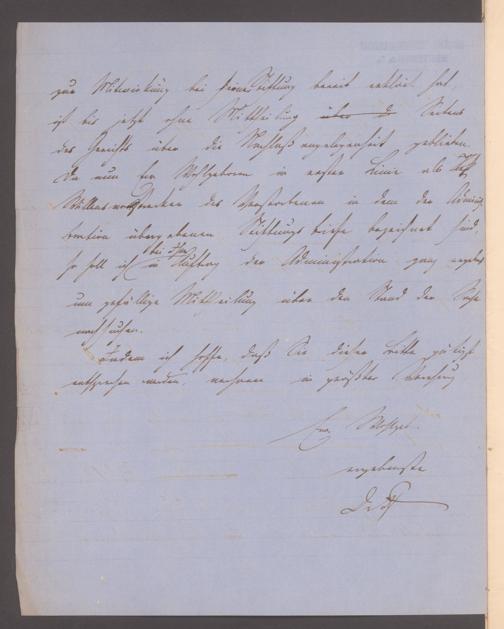 zur Mitwirkung bei seiner Stiftung bereit erklärt hat,
ist bis jetzt ohne Mittheilung über d Seitens
des Gerichts über die Nachlaßangelegenheit geblieben.
Da nun Ew Wohlgeboren in erster Linie als
Willens des Verstorbenen in dem der Admini
stration übergebenen Stiftungsbriefe bezeichnet sind,
so soll ich im Auftrag der Administration ganz ergebenst
um gefällige Mittheilung über den Stand der Sache
nachsuchen.
Indem ich hoffe, daß Sie dieser Bitte gütigst
entsprechen werden, in größter Achtung
Ew. Wohlgeb.
ergebenster